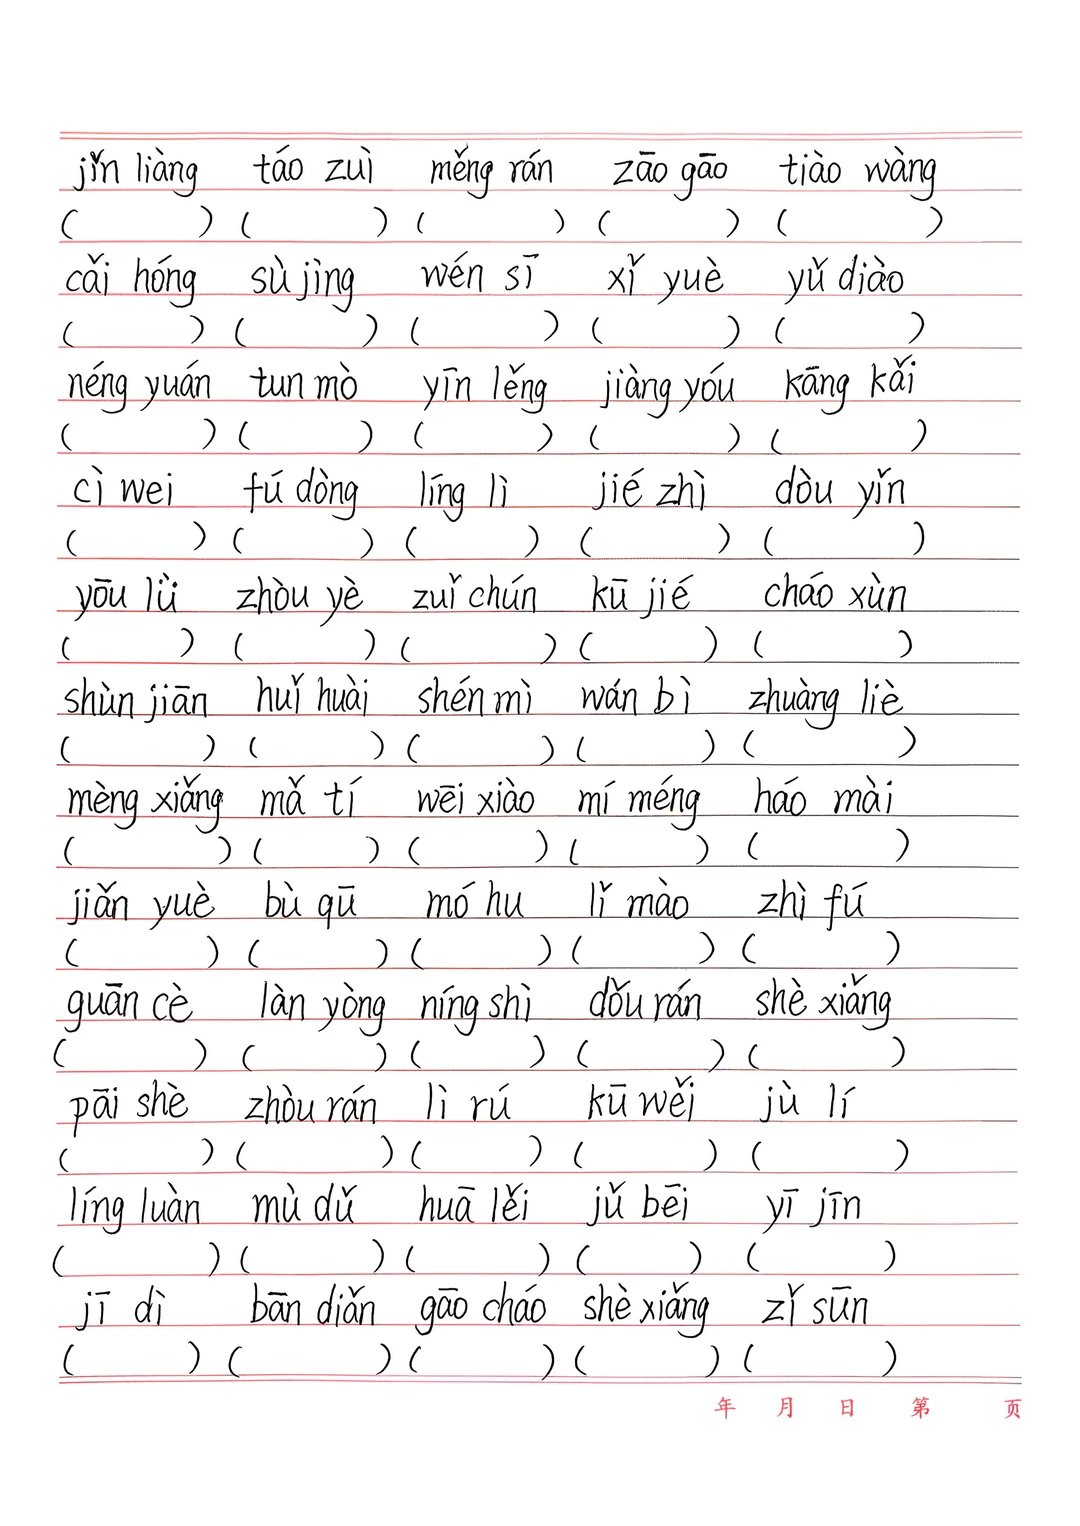 jǐn liàng táo zuì měng rán zāo gāo tiào wàng
( ) ( ) ( ) ( ) ( )
cǎi hóng sù jìng wén sī xǐ yuè yǔ diào
( ) ( ) ( ) ( ) ( )
néng yuán tun mò yīn lěng jiàng yóu kāng kǎi
( ) ( ) ( ) ( ) ( )
cì wei fú dòng líng lì jié zhì dòu yǐn
( ) ( ) ( ) ( ) ( )
yōu lǜ zhòu yè zuǐ chún kū jié cháo xùn
( ) ( ) ( ) ( ) ( )
shùn jiān huǐ huài shén mì wán bì zhuàng liè
( ) ( ) ( ) ( ) ( )
mèng xiǎng mǎ tí wēi xiào mí méng háo mài
( ) ( ) ( ) ( ) ( )
jiǎn yuè bù qū mó hu lǐ mào zhì fú
( ) ( ) ( ) ( ) ( )
guān cè làn yòng níng shì dǒu rán shè xiǎng
( ) ( ) ( ) ( ) ( )
pāi shè zhòu rán lì rú kū wěi jù lí
( ) ( ) ( ) ( ) ( )
líng luàn mù dǔ huā lěi jǔ bēi yī jīn
( ) ( ) ( ) ( ) ( )
jī dì bān diǎn gāo cháo shè xiǎng zǐ sūn
( ) ( ) ( ) ( ) ( )
年 月 日 第 页